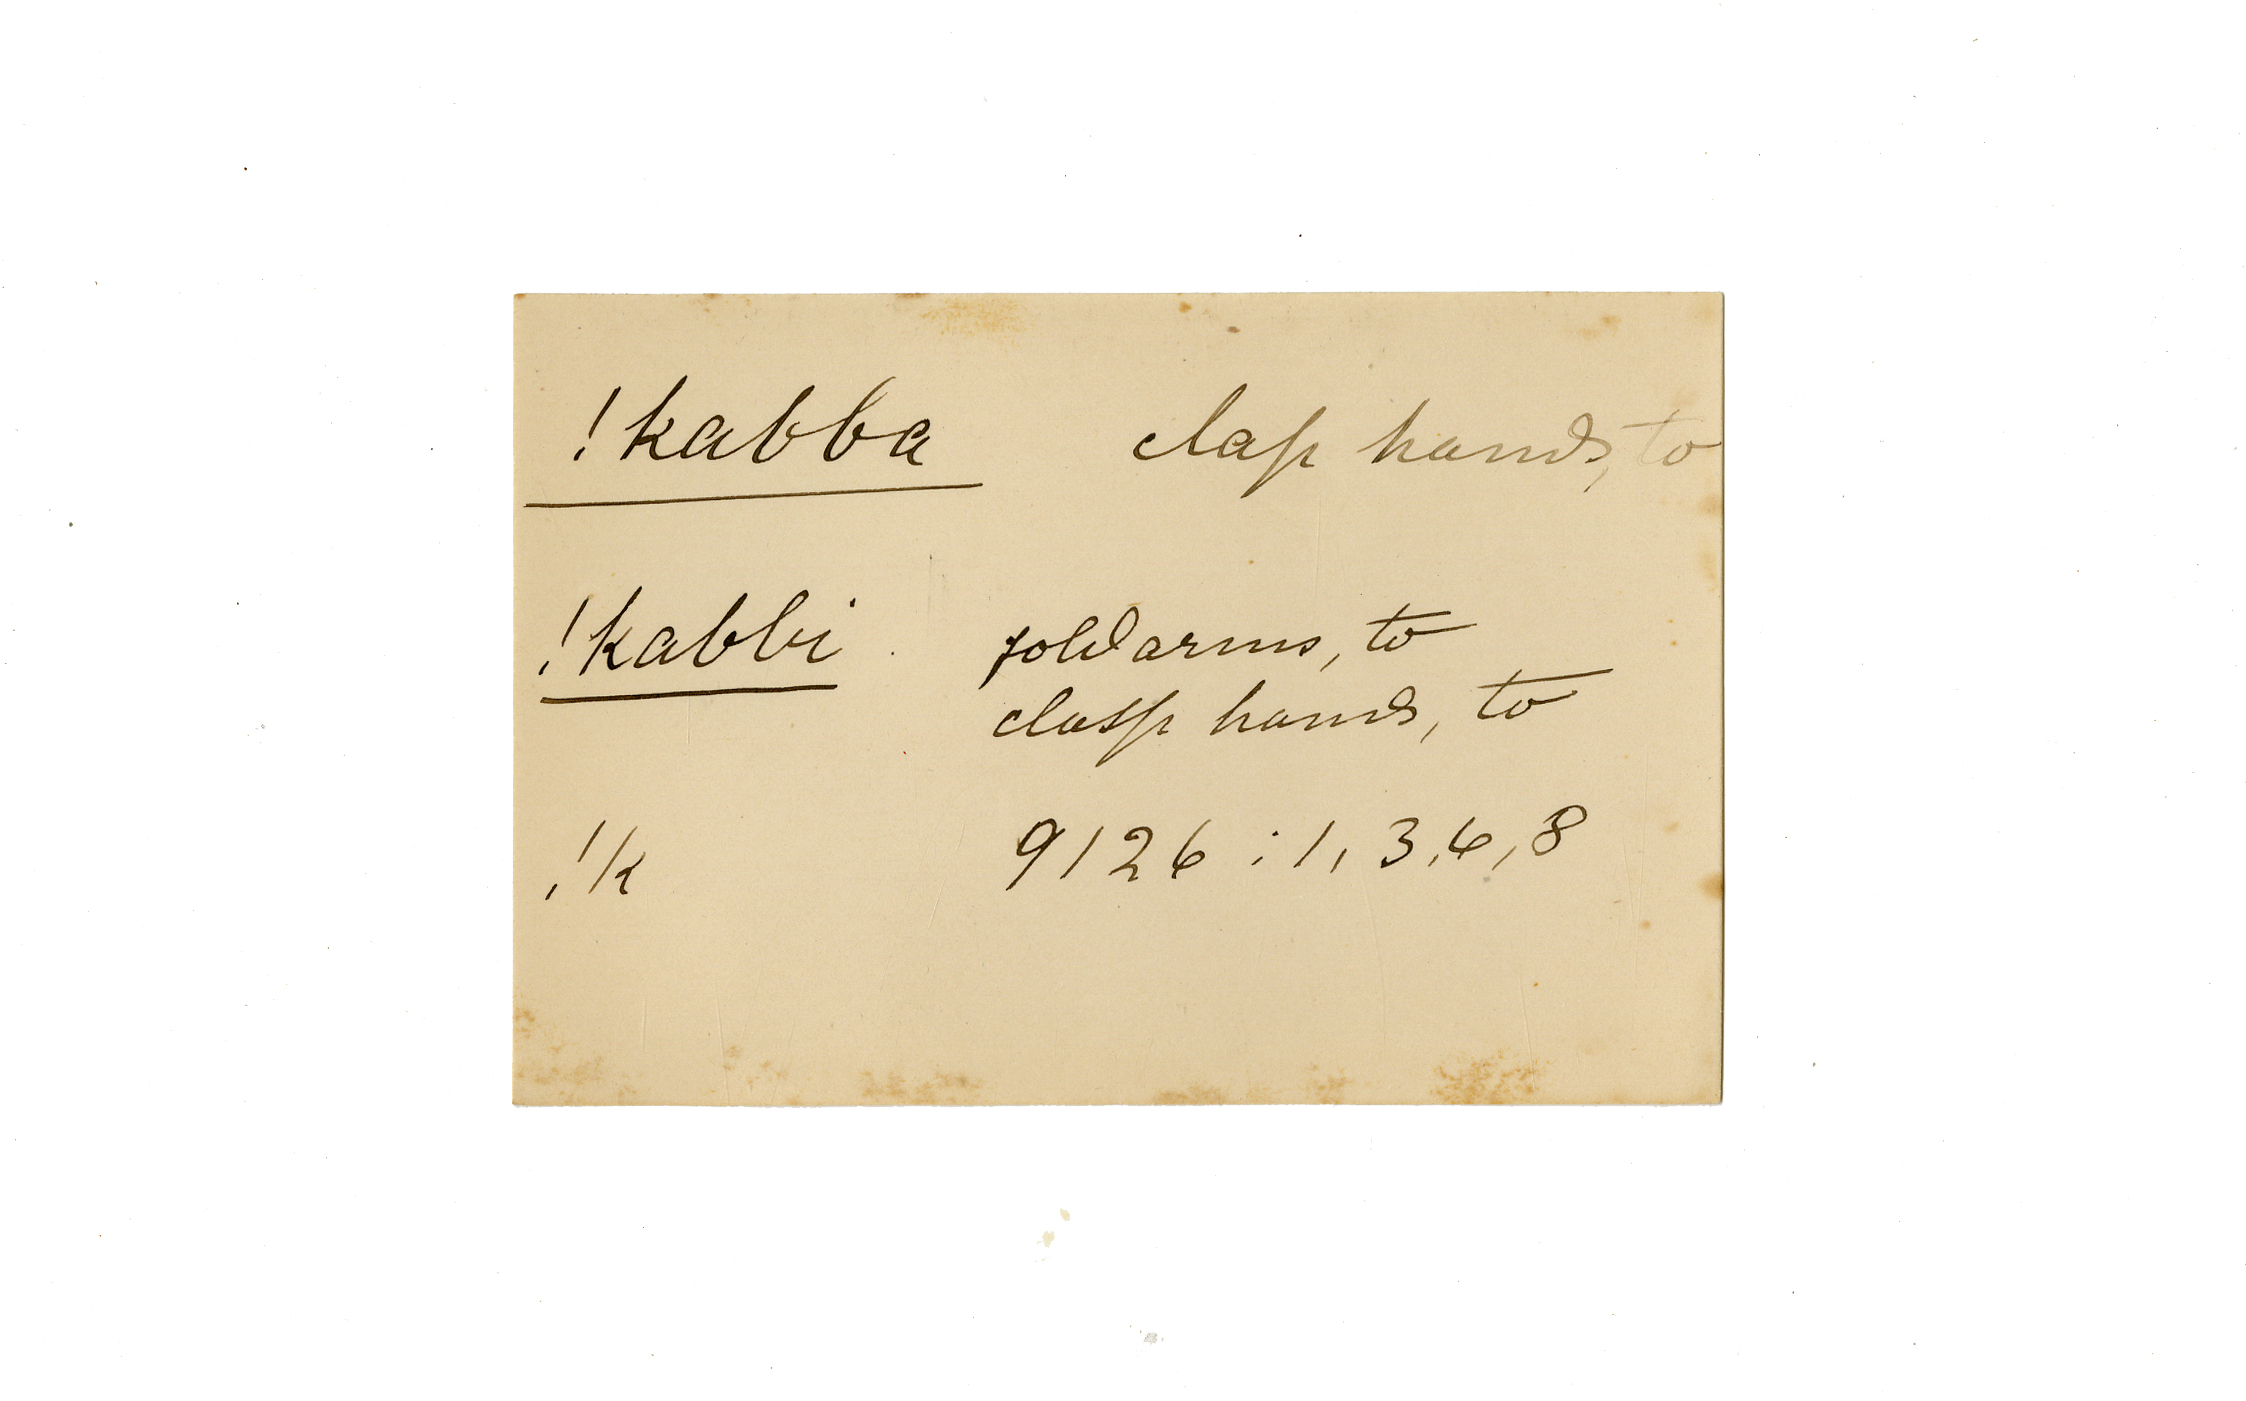 !kabba clap hands, to
!kabbi fold arms, to
clasp hands, to
!k 9126 : 1, 3, 6, 8